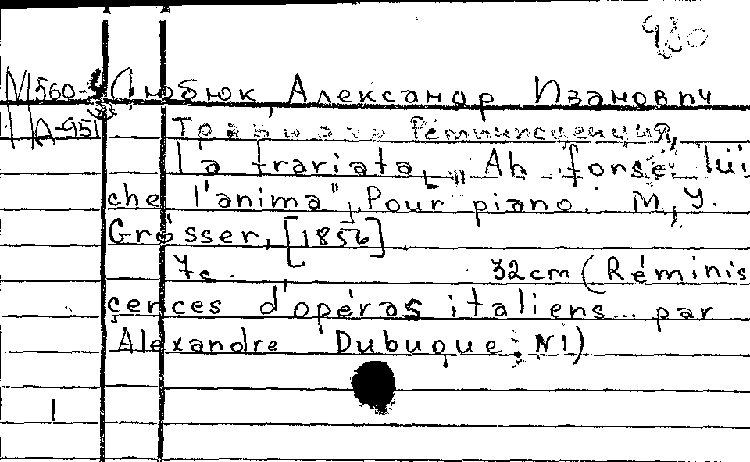 980
М560-4 Дюбюк, Александр Иванович
А-951 Травиата Реминисценция,
La traviata, „Ah forse lui
che l'anima", Pour piano. М., У.
Grosser, [1856]
7с. 32cm (Réminis
cences d'opéras italiens... par
Alexandre Dubuque; N1)
1